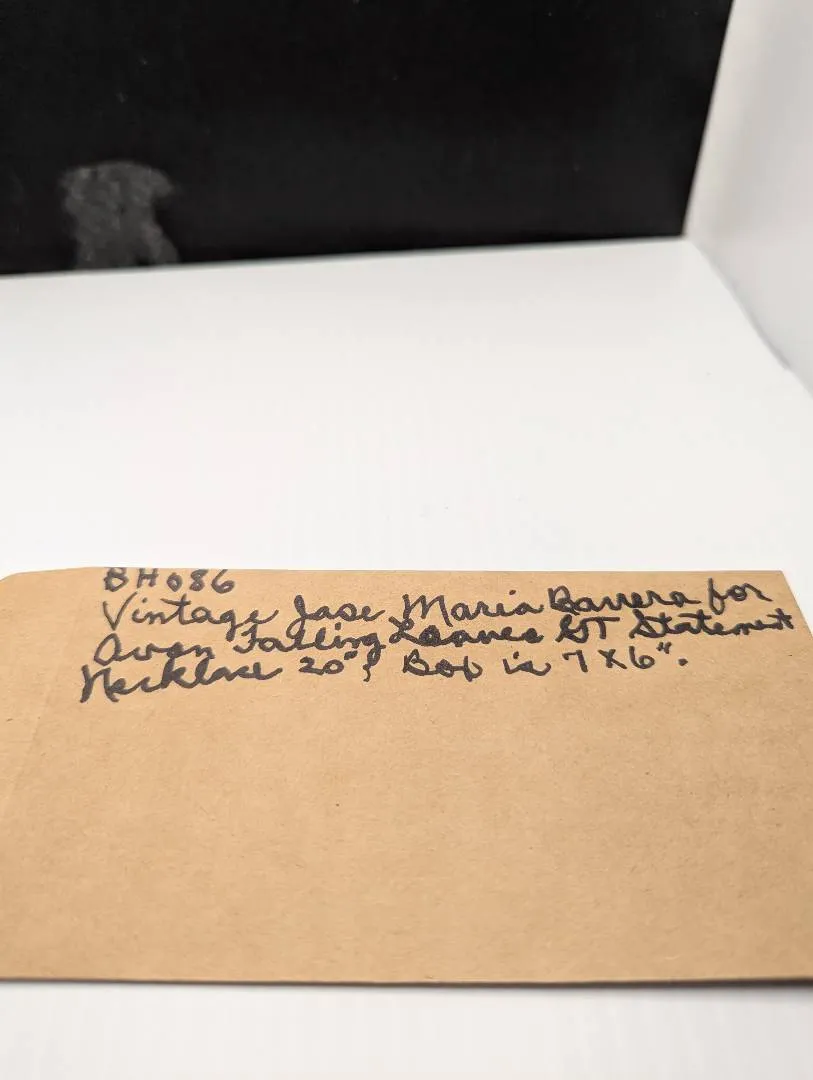 BH086
Vintage Jose Maria Barrera for
Avon Falling Leaves GT Statement
Necklace 20"; Box is 7 X 6".